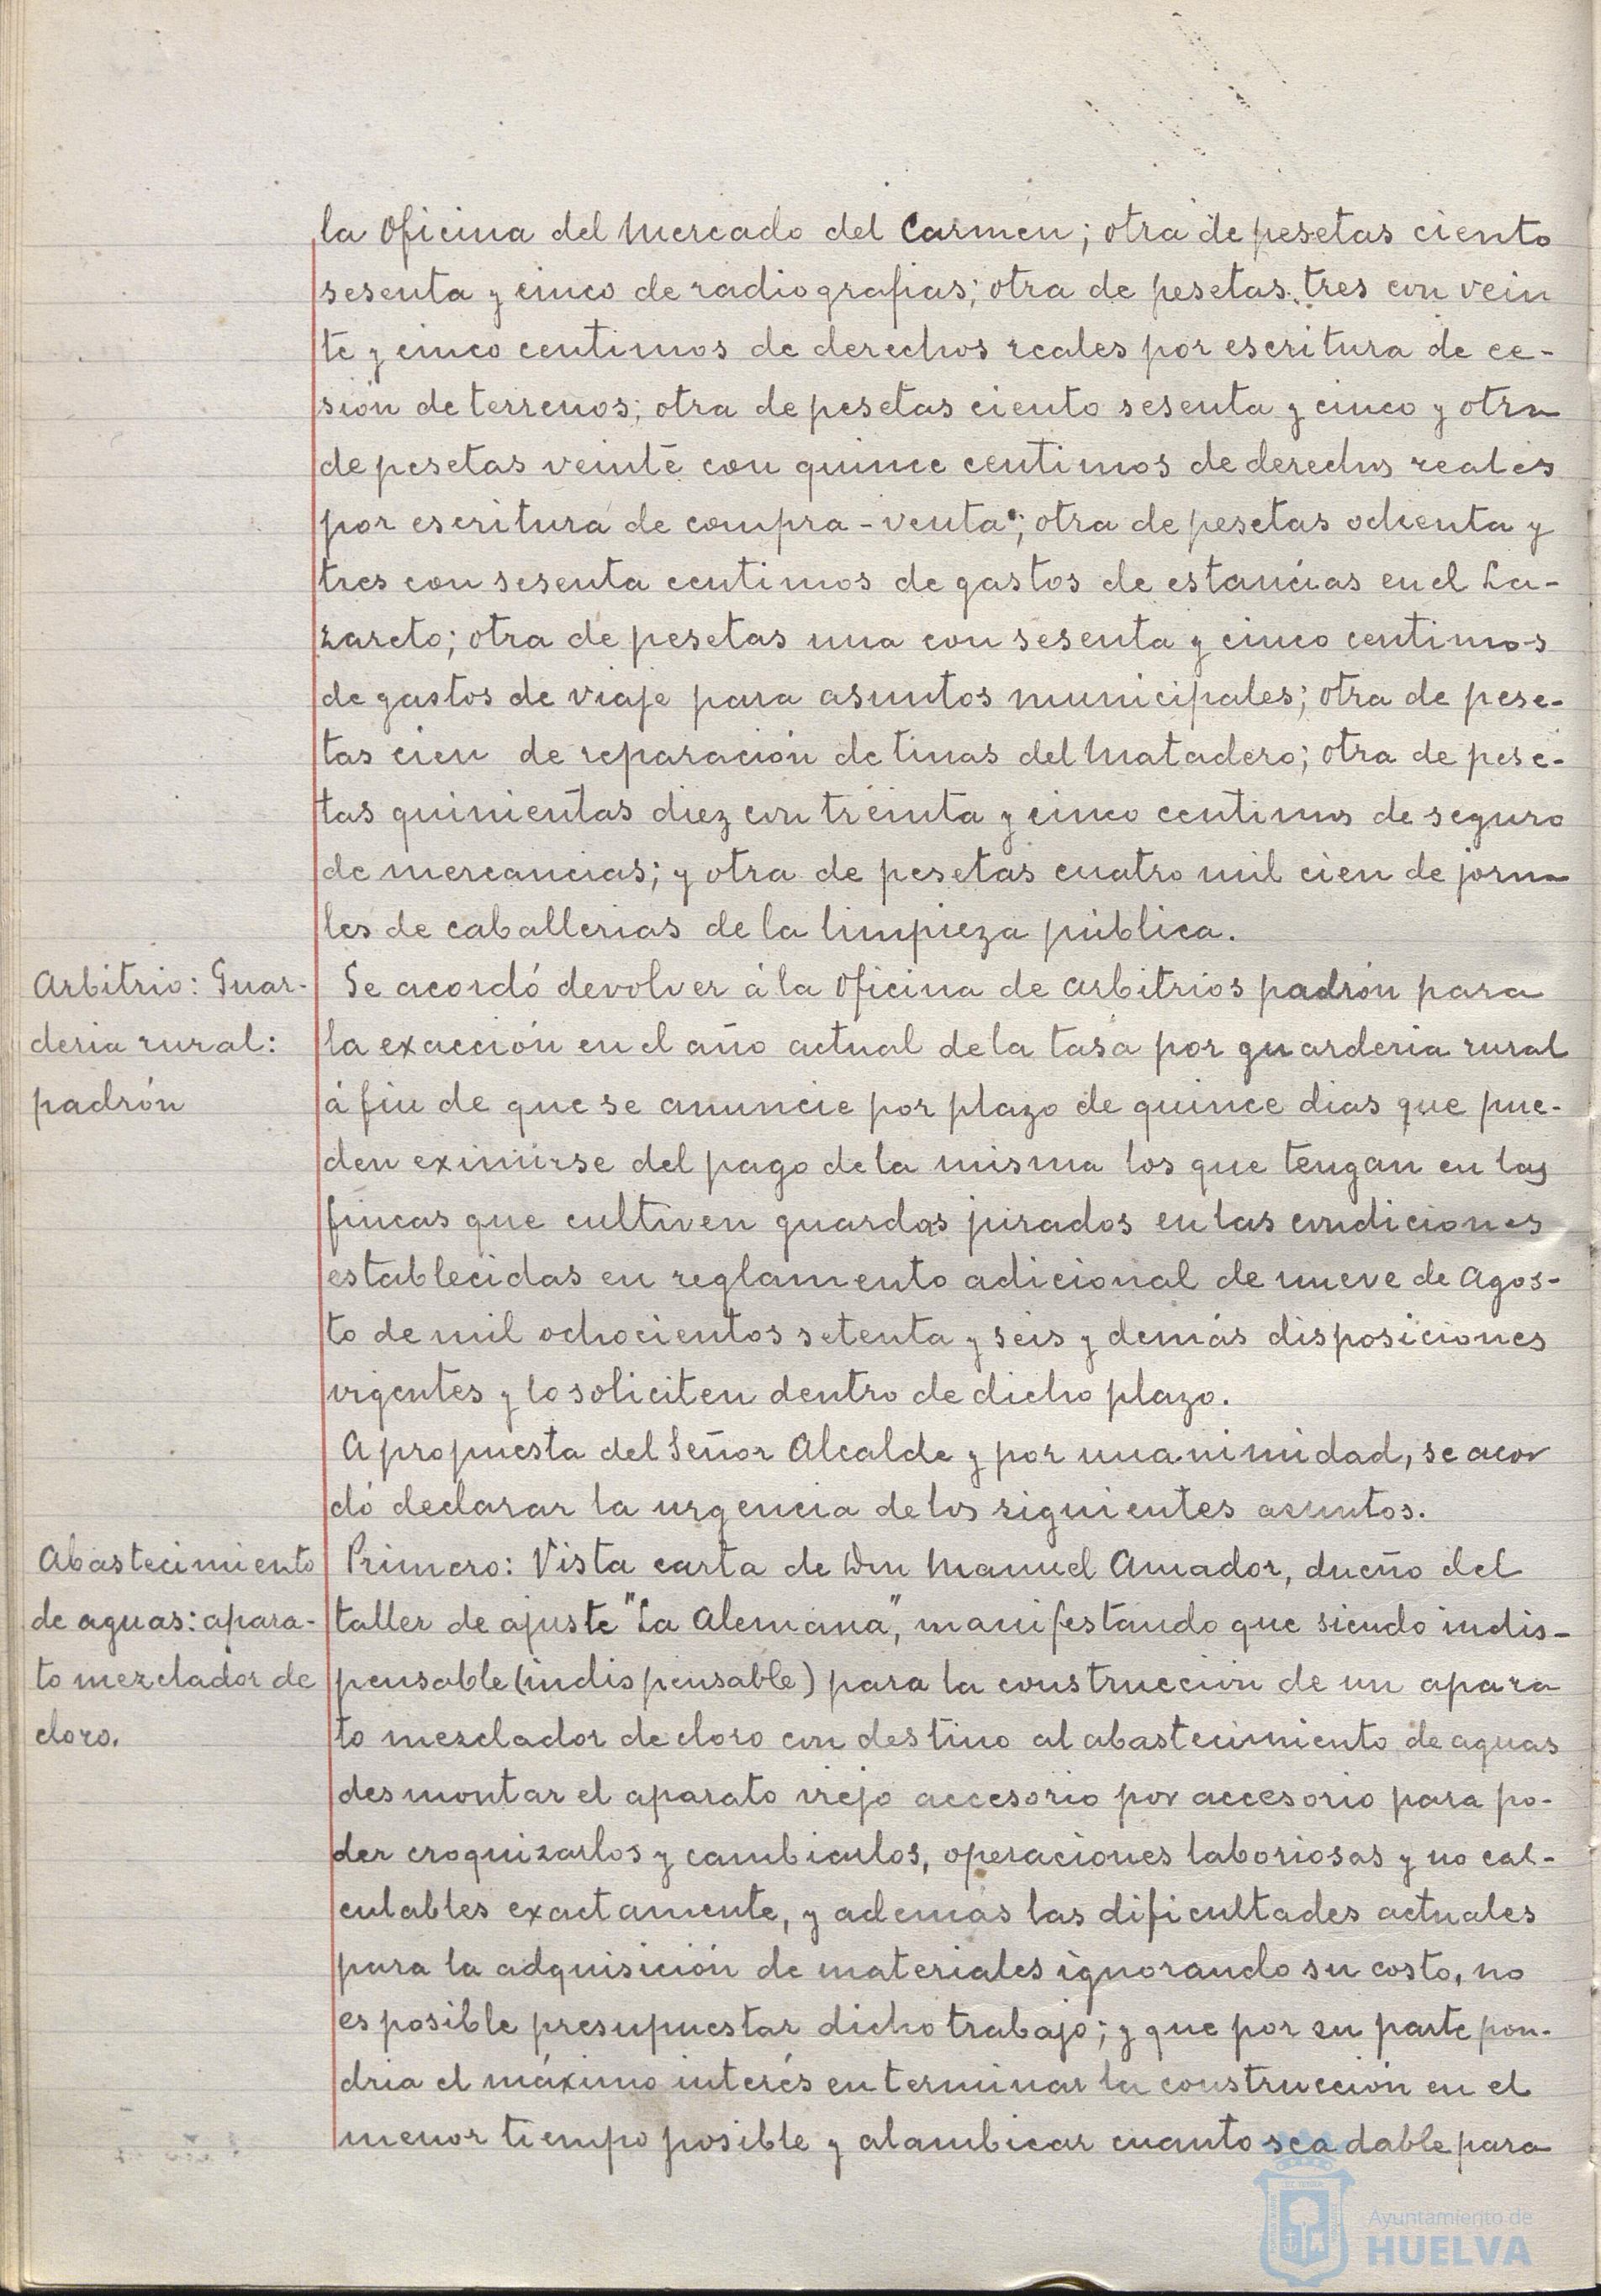 la Oficina del Mercado del Carmen; otra de pesetas ciento
sesenta y cinco de radiografias; otra de pesetas tres con vein
te y cinco centimos de derechos reales por escritura de ce-
sión de terrenos; otra de pesetas ciento sesenta y cinco y otra
de pesetas veinte con quince centimos de derechos reales
por escritura de compra-venta; otra de pesetas ochenta y
tres con sesenta centimos de gastos de estancias en el La-
zareto; otra de pesetas una con sesenta y cinco centimos
de gastos de viaje para asuntos municipales; otra de pese-
tas cien de reparación de tinas del Matadero; otra de pese-
tas quinientas diez con treinta y cinco centimos de seguro
de mercancias; y otra de pesetas cuatro mil cien de jorna
les de caballerias de la limpieza pública.
Arbitrio: Guar-
deria rural:
padrón
Se acordó devolver á la Oficina de Arbitrios padrón para
la exacción en el año actual de la tasa por guarderia rural
á fin de que se anuncie por plazo de quince dias que pue-
den eximirse del pago de la misma los que tengan en las
fincas que cultiven guardas jurados en las condiciones
establecidas en reglamento adicional de nueve de Agos-
to de mil ochocientos setenta y seis y demás disposiciones
vigentes y lo soliciten dentro de dicho plazo.
A propuesta del Señor Alcalde y por unanimidad, se acor
dó declarar la urgencia de los siguientes asuntos.
Abastecimiento
de aguas: apara-
to mezclador de
cloro.
Primero: Vista carta de Don Manuel Amador, dueño del
taller de ajuste "La Alemana", manifestando que siendo indis-
pensable (indispensable) para la construcción de un apara
to mezclador de cloro con destino al abastecimiento de aguas
desmontar el aparato viejo accesorio por accesorio para po-
der croquizarlos y cambiarlos, operaciones laboriosas y no cal-
culables exactamente, y además las dificultades actuales
para la adquisición de materiales ignorando su costo, no
es posible presupuestar dicho trabajo; y que por su parte pon-
dria el máximo interés en terminar la construcción en el
menor tiempo posible y alambicar cuanto sea dable para
Ayuntamiento de
HUELVA